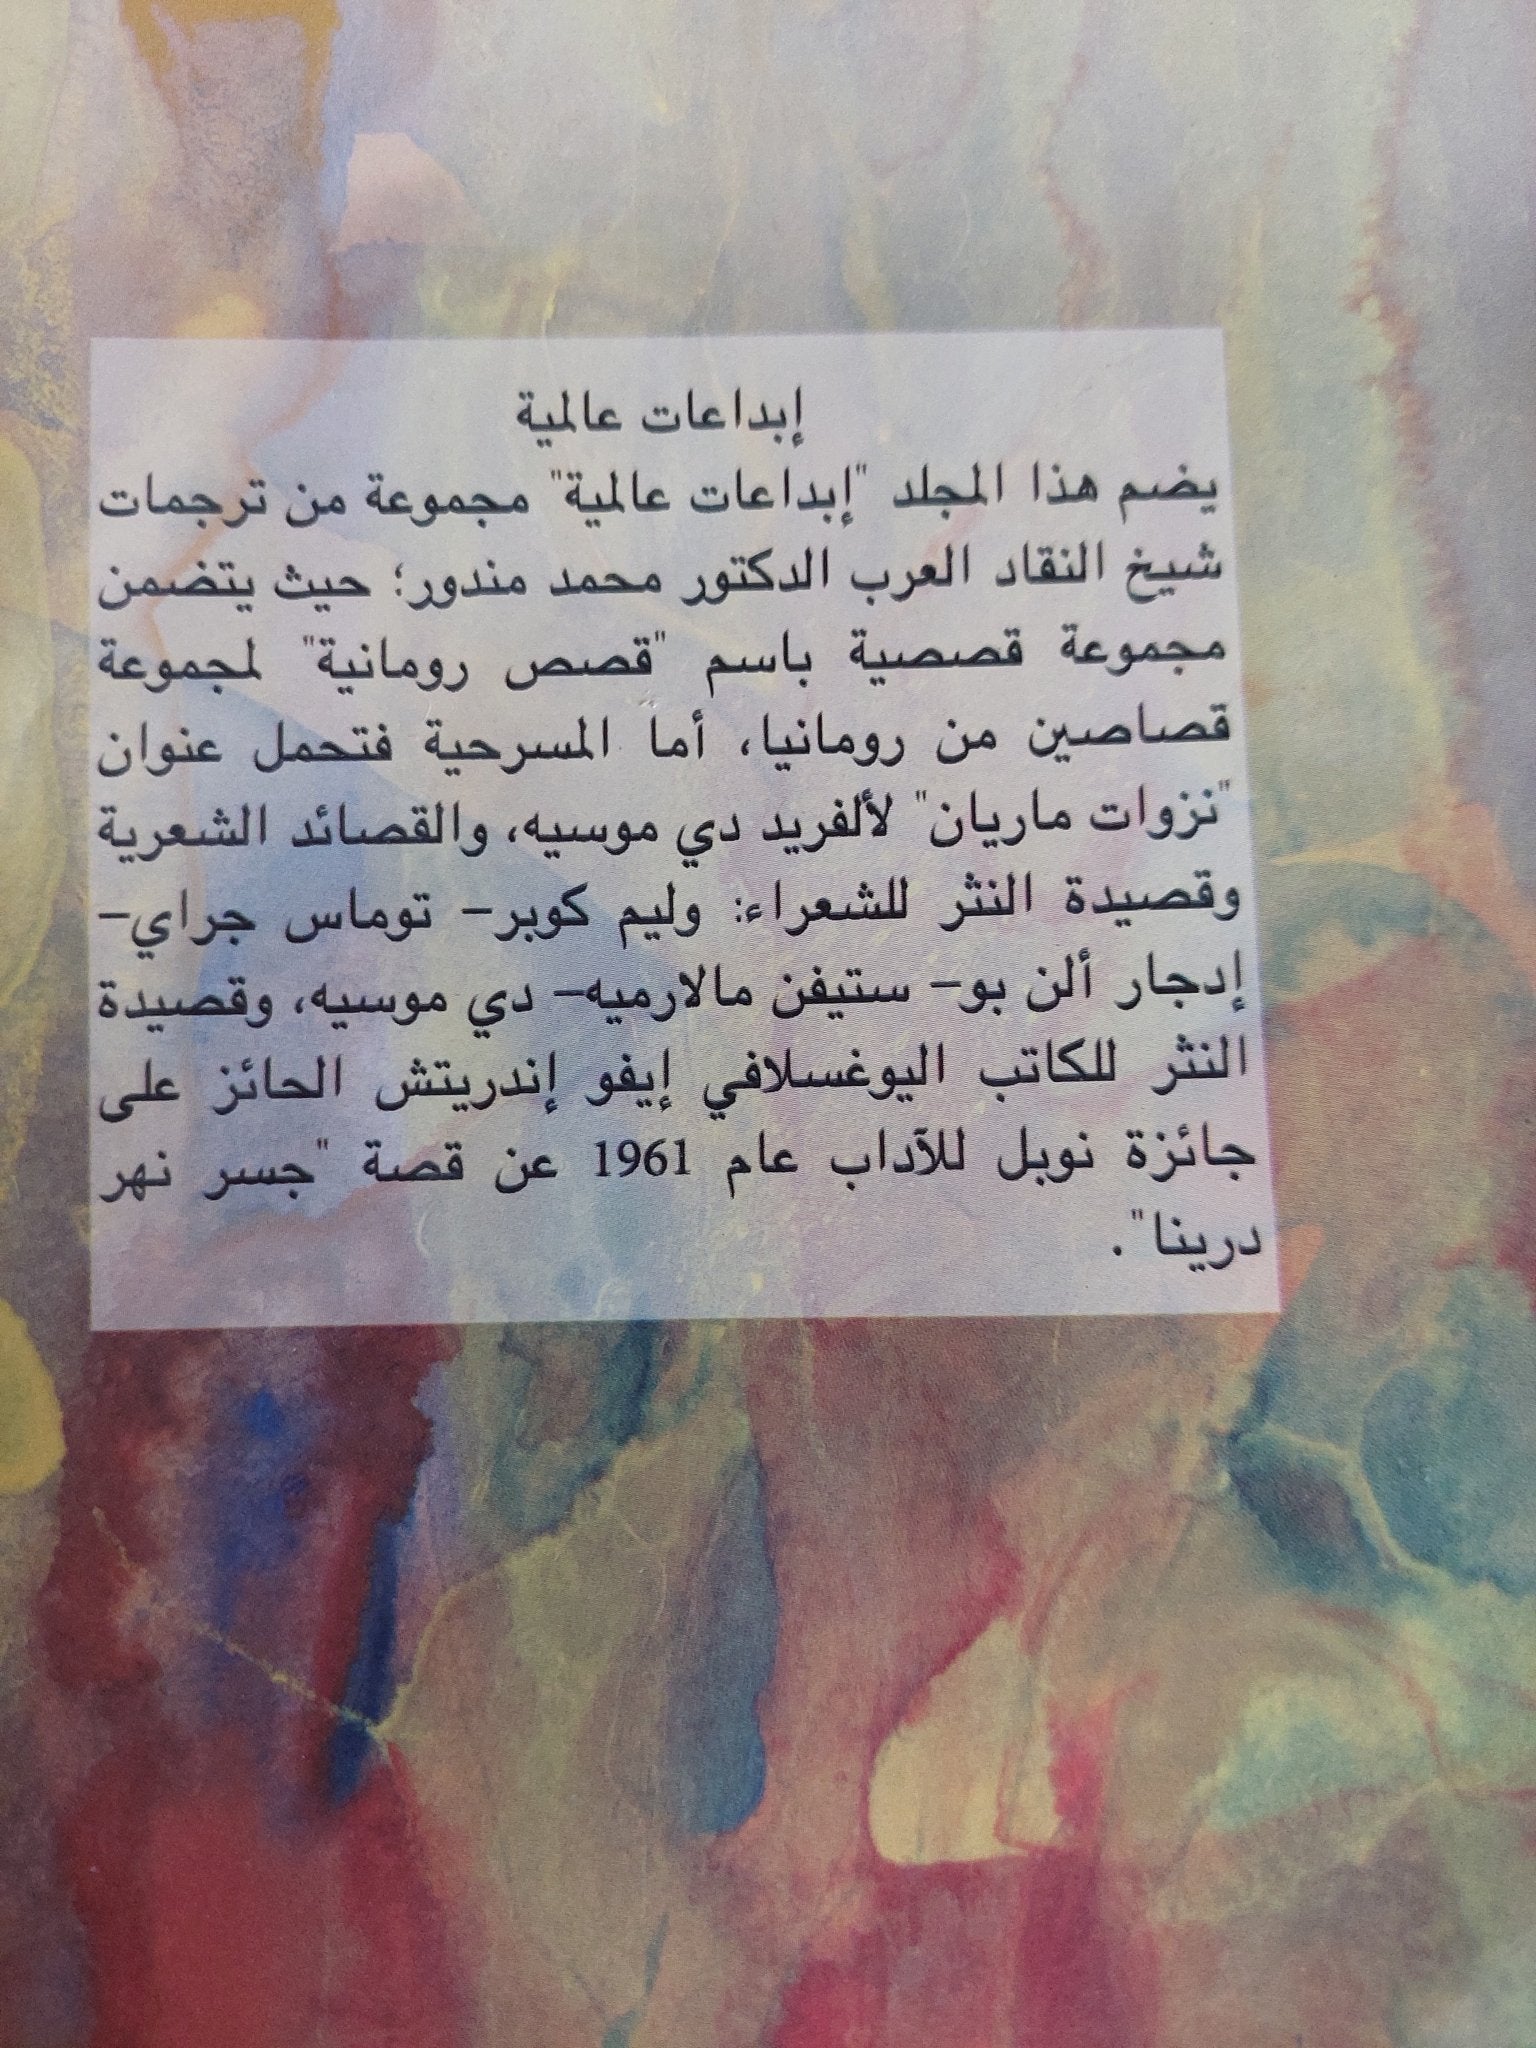 إبداعات عالمية
يضم هذا المجلد "إبداعات عالمية" مجموعة من ترجمات
شيخ النقاد العرب الدكتور محمد مندور؛ حيث يتضمن
مجموعة قصصية باسم "قصص رومانية" لمجموعة
قصاصين من رومانيا، أما المسرحية فتحمل عنوان
"نزوات ماريان" لألفريد دي موسيه، والقصائد الشعرية
وقصيدة النثر للشعراء: وليم كوبر– توماس جراي–
إدجار ألن بو– ستيفن مالارميه– دي موسيه، وقصيدة
النثر للكاتب اليوغسلافي إيفو إندريتش الحائز على
جائزة نوبل للآداب عام 1961 عن قصة "جسر نهر
درينا".